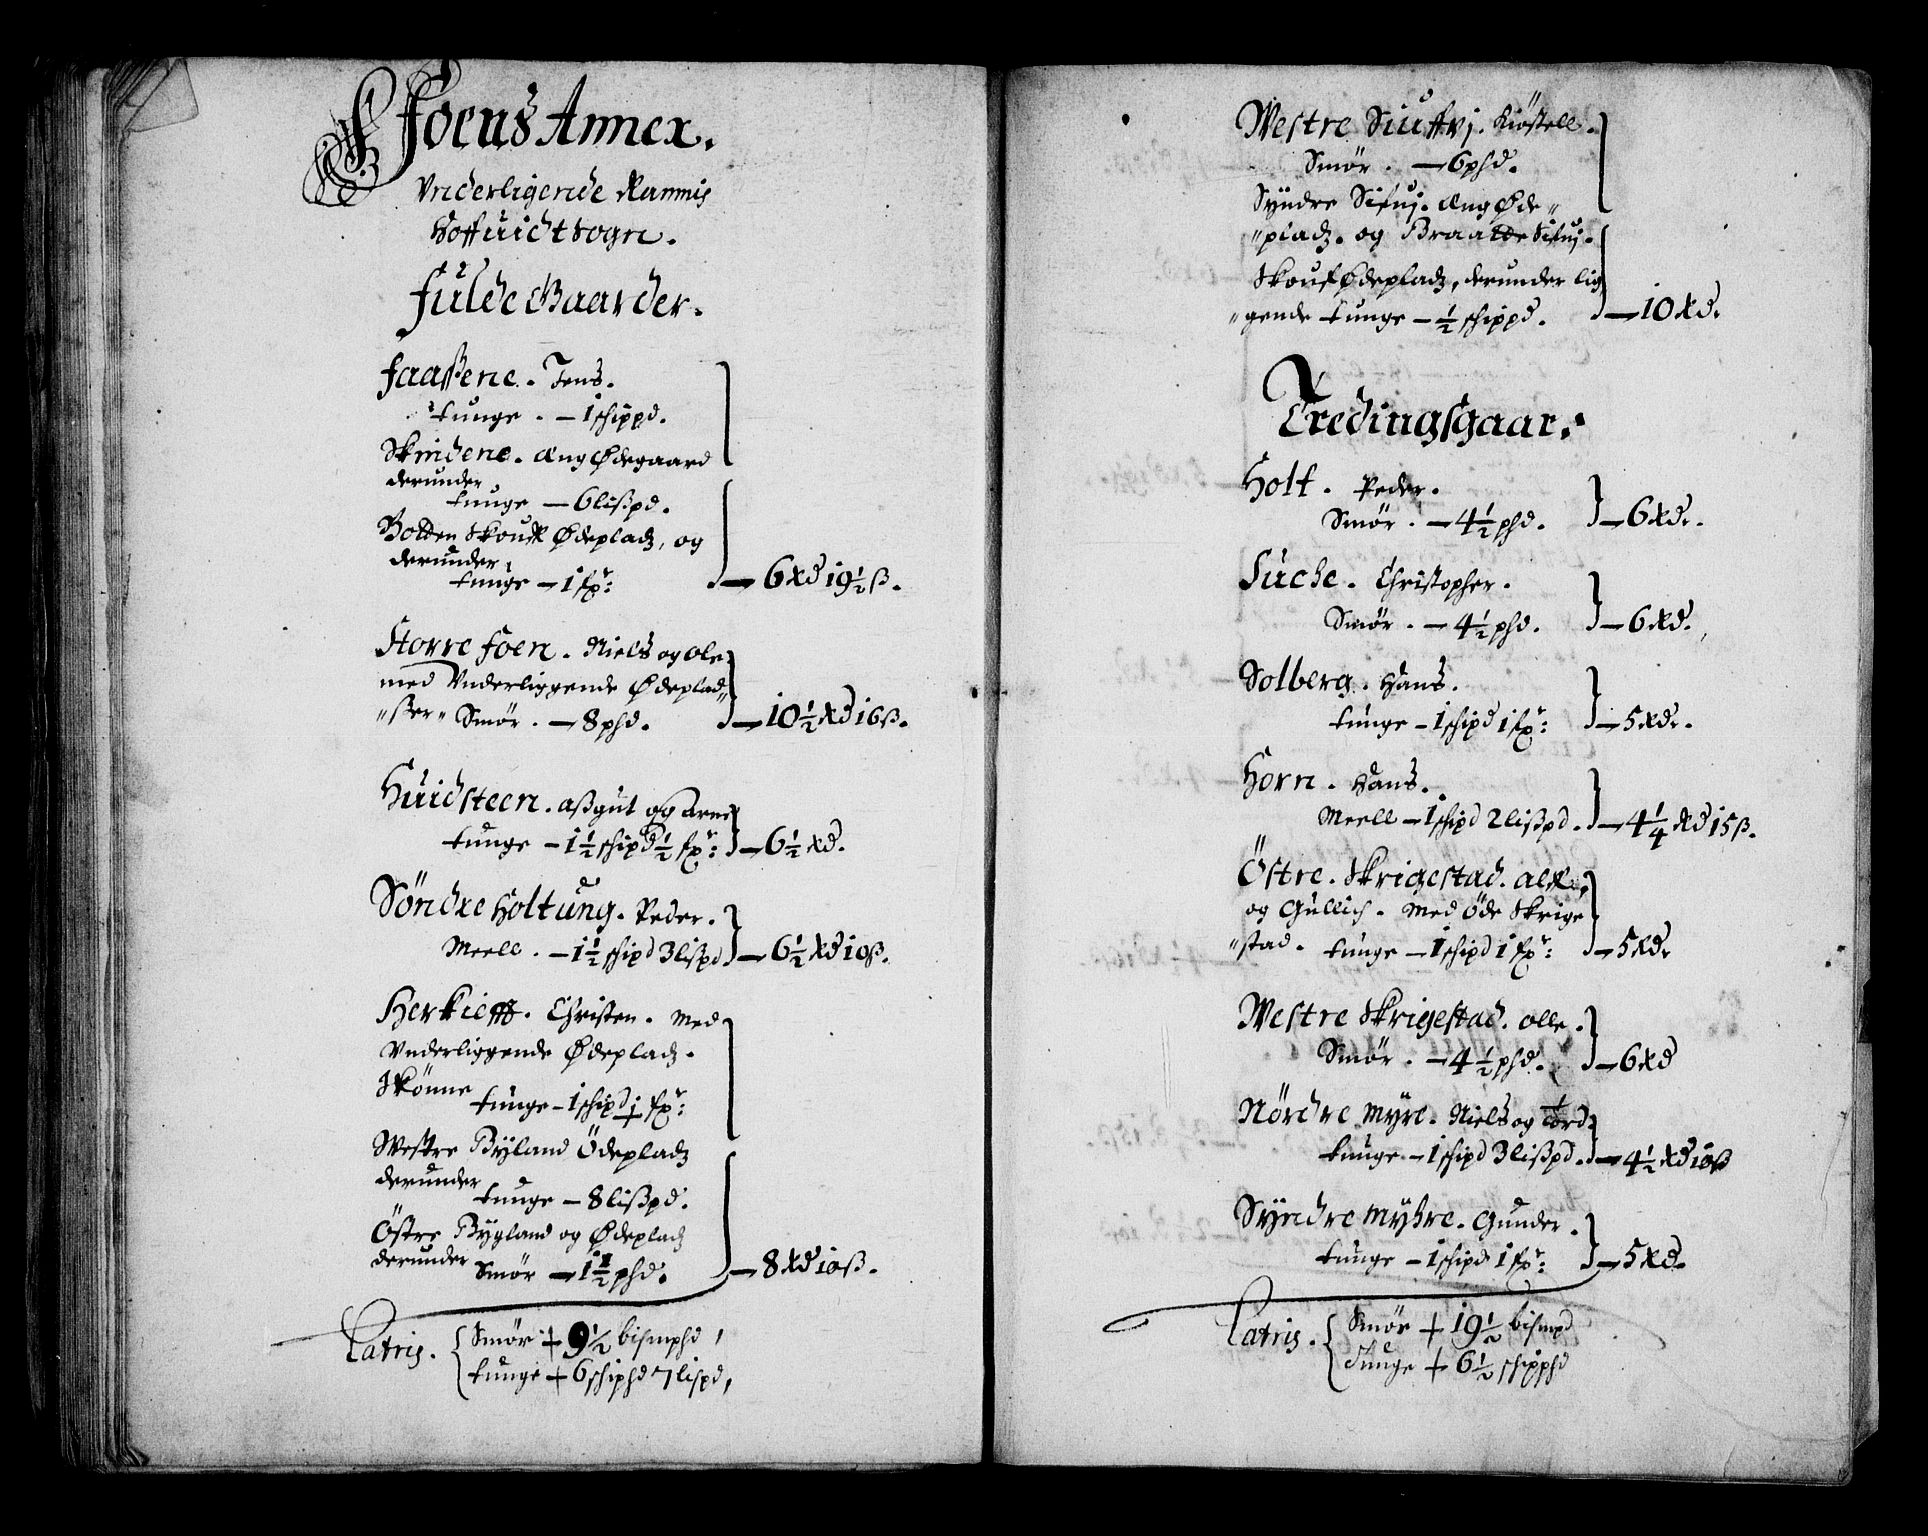 Foeus Annex.
Vnderligende Rammis
Hoffuidt Sogn.
Fulde Gaarder.
Faaßene. Jens.
tunge. — 1 schippd.
Skridene. Æng Ødegaard
derunder
tunge — 6 lißpd.
Bolden Skouff Ødepladz, og
derunder
tunge — 1 fxr: — 6 Rd 19½ ß.
Storre Foen. Niels og Ole
med Vnderliggende Ødeplad„
„ßer„ Smör. — 8 phd. — 10½ Rd 16 ß.
Huidsteen. Aßgut og Arne
tunge — 1½ schipd ½ fxr: — 6½ Rd.
Söndre Holtung. Peder.
Meell. — 1½ schipd 3 lißpd — 6½ Rd 10 ß.
Herkieff. Christen. Med
Vnderliggende Ødepladz.
Skönne
tunge — 1 schipd 1 fxr:
Westre Bÿland Ödepladz
derunder
tunge — 8 lißpd.
Östre Bÿgland og Ødepladz
derunder
Smör — 1½ phd. — 8 Rd 10 ß.
Latris. Smör + 9½ bismphd,
tunge + 6 schiphd 7 lispd,
Westre Siuffvj. Kiöstell.
Smör. — 6 phd.
Sÿndre Sifuj. Æng Øde„
„pladz. og Braatte Sifuj.
Skouf Ødepladz, derunder lig
„gende tunge — ½ schippd. — 10 Rd.
Tredingsgaar.
Holt. Peder.
Smör. — 4½ phd. — 6 Rd.
Suche. Christopher.
Smör. — 4½ phd. — 6 Rd.
Solberg. Hans.
tunge — 1 schipd 1 fxr: — 5 Rd.
Horn. Hans.
Meell — 1 schipd 2 lißpd. — 4¼ Rd 15 ß.
Östre. Skrigestad. Alf
og Gullich. Med Öde Skrige
„stad. tunge — 1 schipd 1 fxr: — 5 Rd.
Westre Skrigestad. Olle.
Smör. — 4½ phd. — 6 Rd
Nördre Mÿre. Niels og Tord.
tunge — 1 schipd 3 lißpd. — 4½ Rd 10 ß
Sÿndre Mÿhre. Gunder.
tunge — 1 schipd 1 fxr: — 5 Rd.
Latris. Smör + 19½ bismpd
Tunge + 6½ schipphd